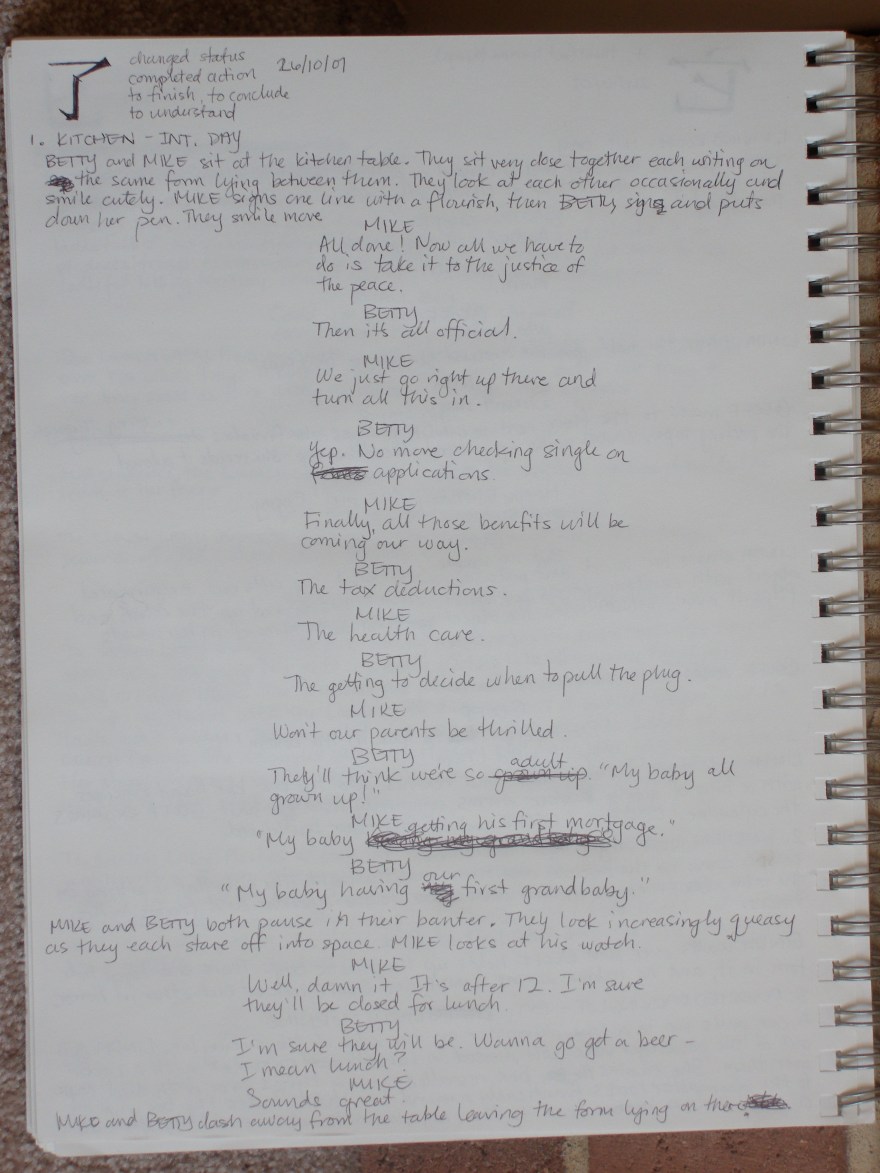 了
changed status
completed action 26/10/07
to finish, to conclude
to understand
1. KITCHEN - INT. DAY
BETTY and MIKE sit at the kitchen table. They sit very close together each writing on
the same form lying between them. They look at each other occasionally and
smile cutely. MIKE signs one line with a flourish, then BETTY signs and puts
down her pen. They smile more
MIKE
All done! Now all we have to
do is take it to the justice of
the peace.
BETTY
Then it's all official.
MIKE
We just go right up there and
turn all this in.
BETTY
Yep. No more checking single on
applications.
MIKE
Finally, all those benefits will be
coming our way.
BETTY
The tax deductions.
MIKE
The health care.
BETTY
The getting to decide when to pull the plug.
MIKE
Won't our parents be thrilled.
BETTY
They'll think we're so grown up adult. "My baby all
grown up!"
MIKE
"My baby getting his first mortgage."
BETTY
"My baby having our first grandbaby."
MIKE and BETTY both pause in their banter. They look increasingly queasy
as they each stare off into space. MIKE looks at his watch.
MIKE
Well, damn it. It's after 12. I'm sure
they'll be closed for lunch.
BETTY
I'm sure they will be. Wanna go get a beer -
I mean lunch?
MIKE
Sounds great.
MIKE and BETTY dash away from the table leaving the form lying on there